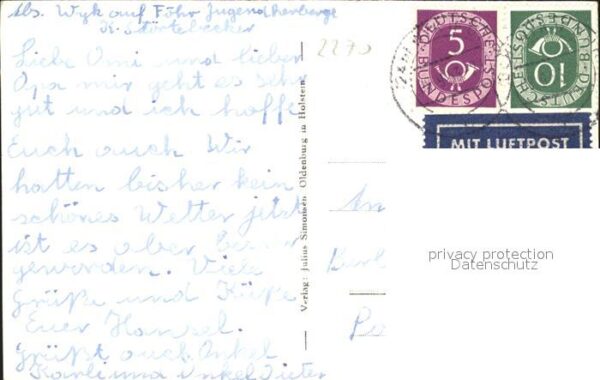 Abs. Wyk auf Föhr Jugendherberge
K. Störtebecker
2270
Liebe Omi und lieber
Opa mir geht es sehr
gut und ich hoffe
Euch auch Wir
hatten bisher kein
schönes Wetter jetzt
ist es aber besser
geworden. Viele
Grüße und Küße
Euer Hansel.
Grüßt auch Onkel
Karli und Onkel Dieter
Verlag: Julius Simonsen Oldenburg in Holstein
DEUTSCHE BUNDESPOST
5
DEUTSCHE BUNDESPOST
10
MIT LUFTPOST
An
privacy protection
Datenschutz